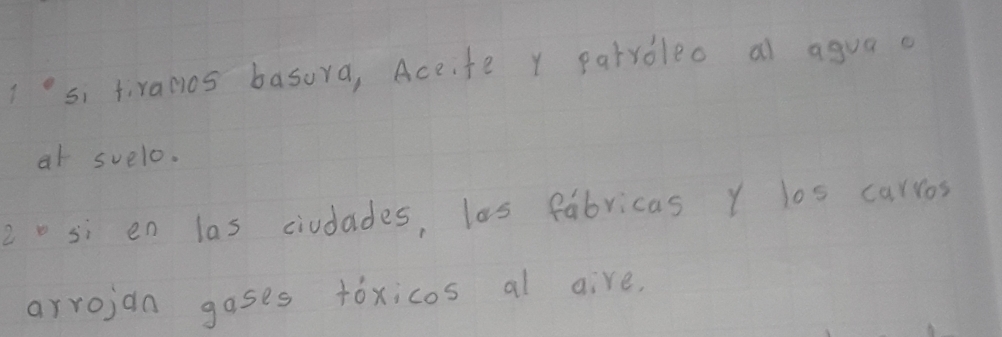 1 • si tiramos basura, Aceite y patróleo al agua o
al suelo.
2 • si en las ciudades, las fábricas y los carros
arrojan gases tóxicos al aire.